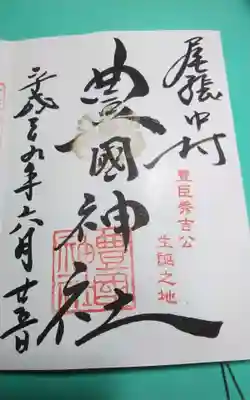 尾張中村
豊臣秀吉公
生誕之地
豊國神社
平成三九年六月廿五日